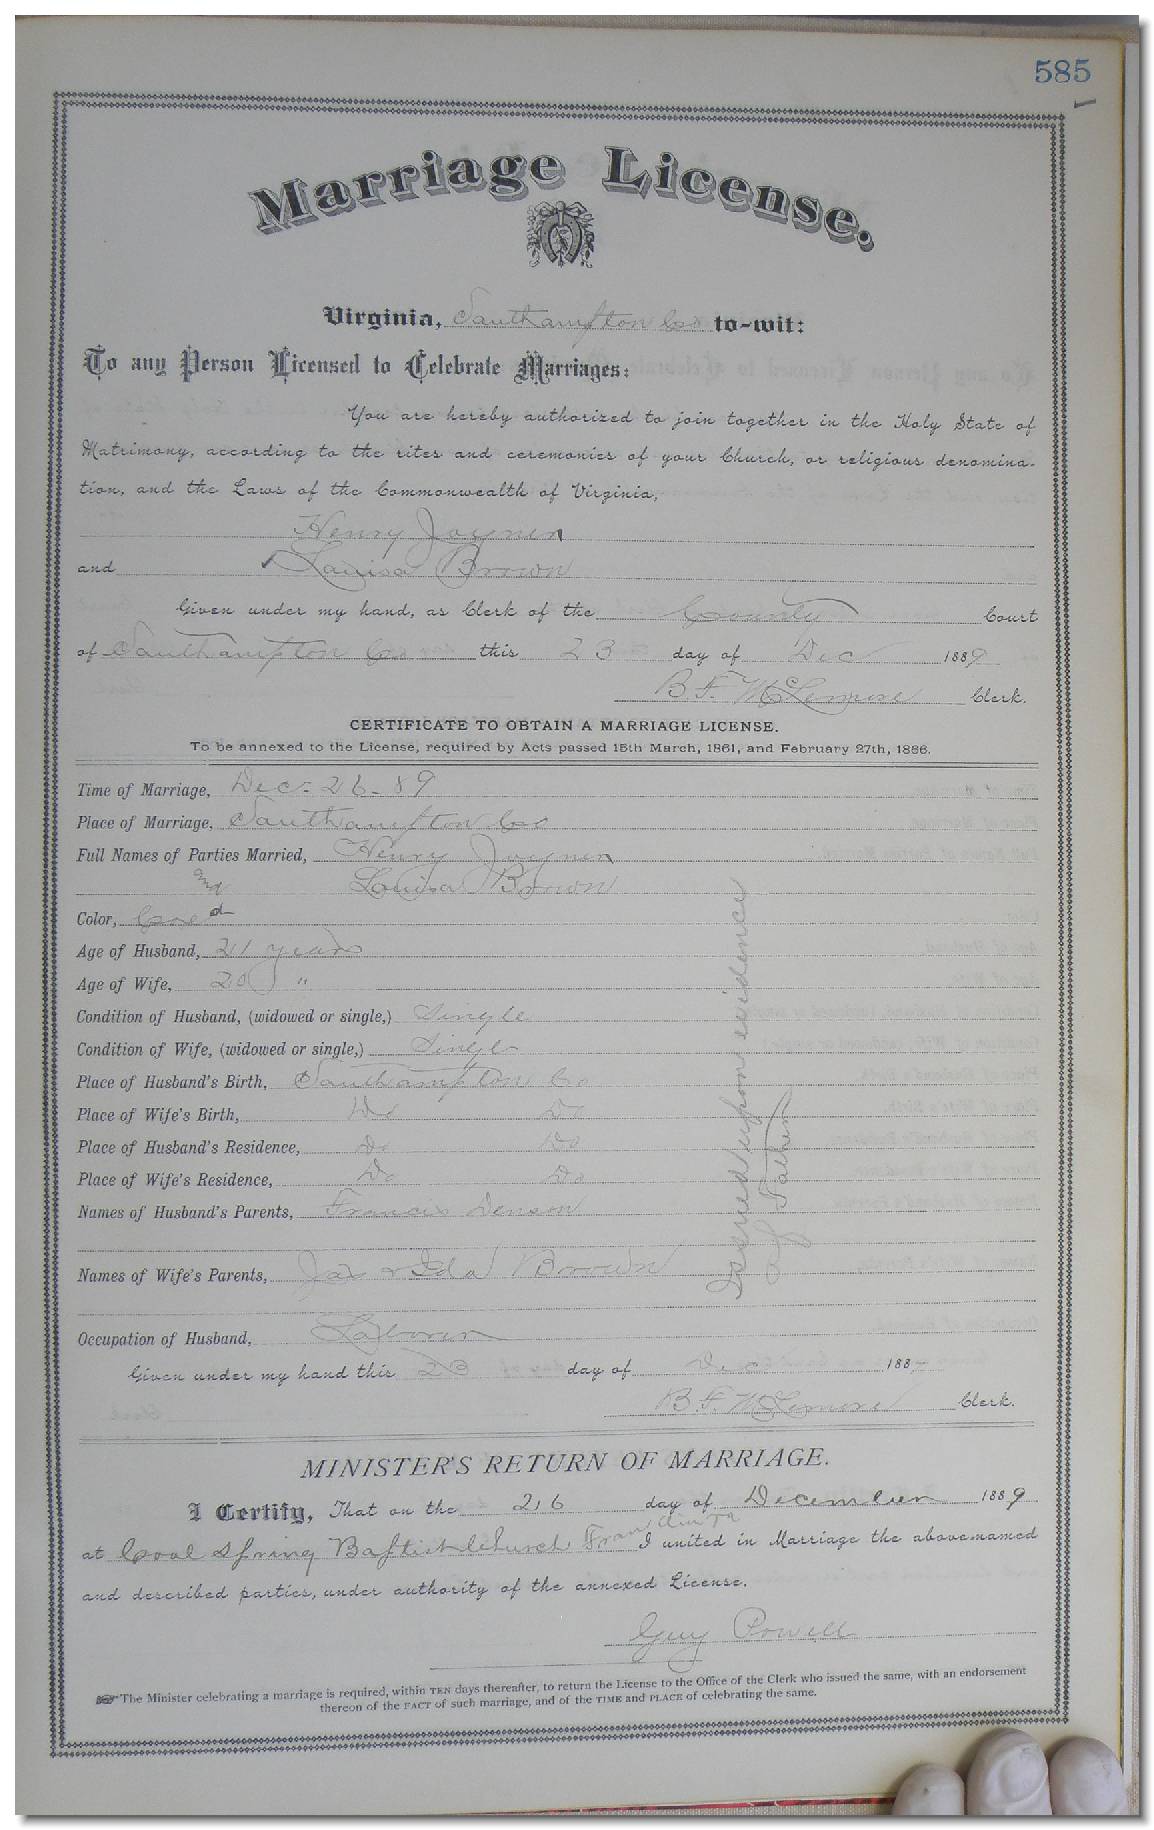 585
Marriage License.
Virginia, Southampton Co to-wit:
To any Person Licensed to Celebrate Marriages:
You are hereby authorized to join together in the Holy State of
Matrimony, according to the rites and ceremonies of your Church, or religious denomina-
tion, and the Laws of the Commonwealth of Virginia,
Henry Joyner
and Louisa Brown
Given under my hand, as Clerk of the County Court
of Southampton Co this 23 day of Dec 1889
B. F. McLemore Clerk.
CERTIFICATE TO OBTAIN A MARRIAGE LICENSE.
To be annexed to the License, required by Acts passed 15th March, 1861, and February 27th, 1886.
Time of Marriage, Dec - 26 - 89
Place of Marriage, Southampton Co
Full Names of Parties Married, Henry Joyner
and Louisa Brown
Color, Cold
Age of Husband, 21 years
Age of Wife, 20 "
Condition of Husband, (widowed or single,) Single
Condition of Wife, (widowed or single,) Single
Place of Husband's Birth, Southampton Co
Place of Wife's Birth, Do Do
Place of Husband's Residence, Do Do
Place of Wife's Residence, Do Do
Names of Husband's Parents, Francis Denson
Names of Wife's Parents, Jas & Ida Brown
Occupation of Husband, Laborer
Issued upon evidence
of Father
Given under my hand this 23 day of Dec 188
B. F. McLemore Clerk.
MINISTER'S RETURN OF MARRIAGE.
I Certify, That on the 26 day of December 1889
at Cool Spring Baptist Church Franklin Va I united in Marriage the above named
and described parties, under authority of the annexed License.
Guy Powell
The Minister celebrating a marriage is required, within TEN days thereafter, to return the License to the Office of the Clerk who issued the same, with an endorsement
thereon of the FACT of such marriage, and of the TIME and PLACE of celebrating the same.